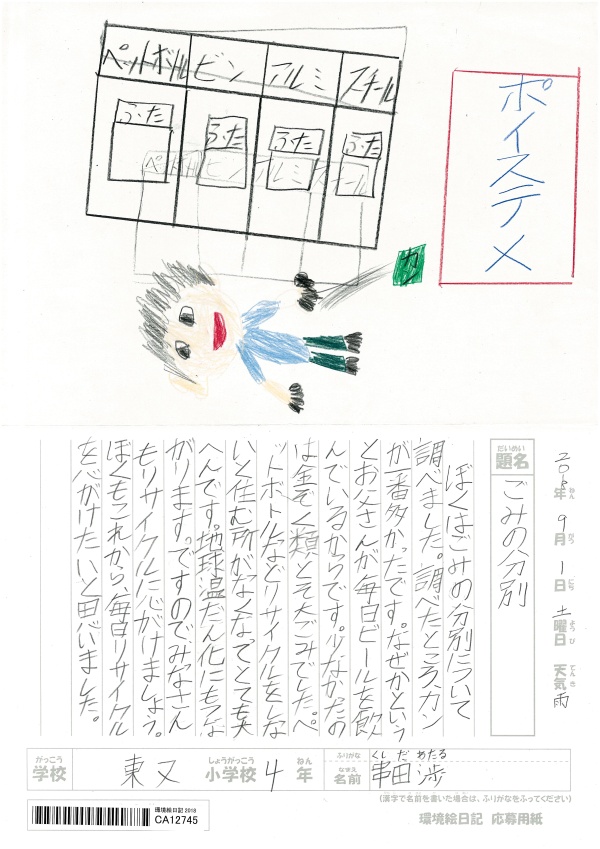 ペットボトル
ビン
アルミ
スチール
ふた
ふた
ふた
ふた
ペットボトル
ビン
アルミ
スチール
ポイステ×
カン
2018年 9月 1日 土曜日 天気 雨
ねん がつ にち ようび てんき
だいめい
題名
ごみの分別
ぼくはごみの分別について
調べました。調べたところカン
が一番多かったです。なぜかという
とお父さんが毎日ビールを飲
んでいるからです。少なかったの
は金ぞく類とそ大ごみでした。ペ
ットボトルなどリサイクルをしな
いと住む所がなくなってとても大
へんです。地球温だん化にもつな
がります。ですのでみなさん
もリサイクルに心がけましょう。
ぼくもこれから、毎日リサイクル
を心がけたいと思いました。
がっこう しょうがっこう ねん ふりがな くしだ あたる
学校 東又 小学校 4年 なまえ 名前 串田 渉
(漢字で名前を書いた場合は、ふりがなをふってください)
環境絵日記 2018
CA12745
環境絵日記 応募用紙